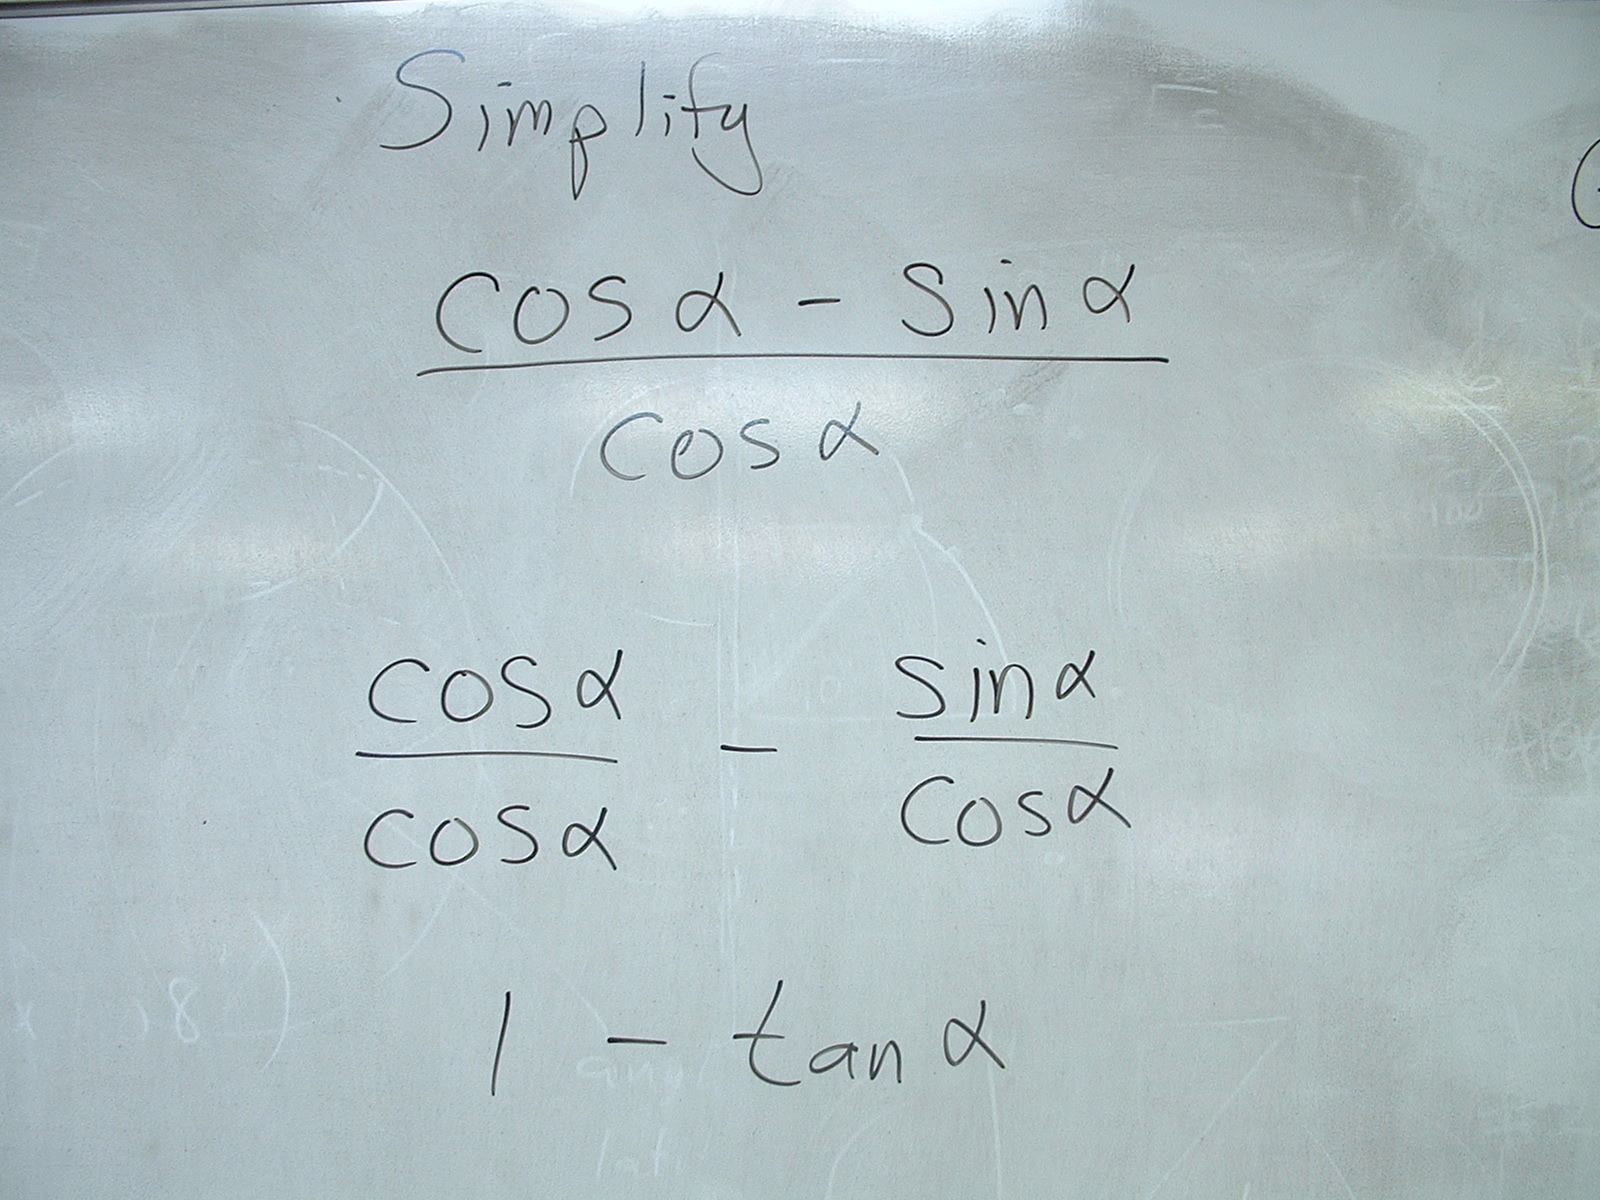 Simplify
cos α - sin α
cos α
cos α - sin α
cos α cos α
1 - tan α